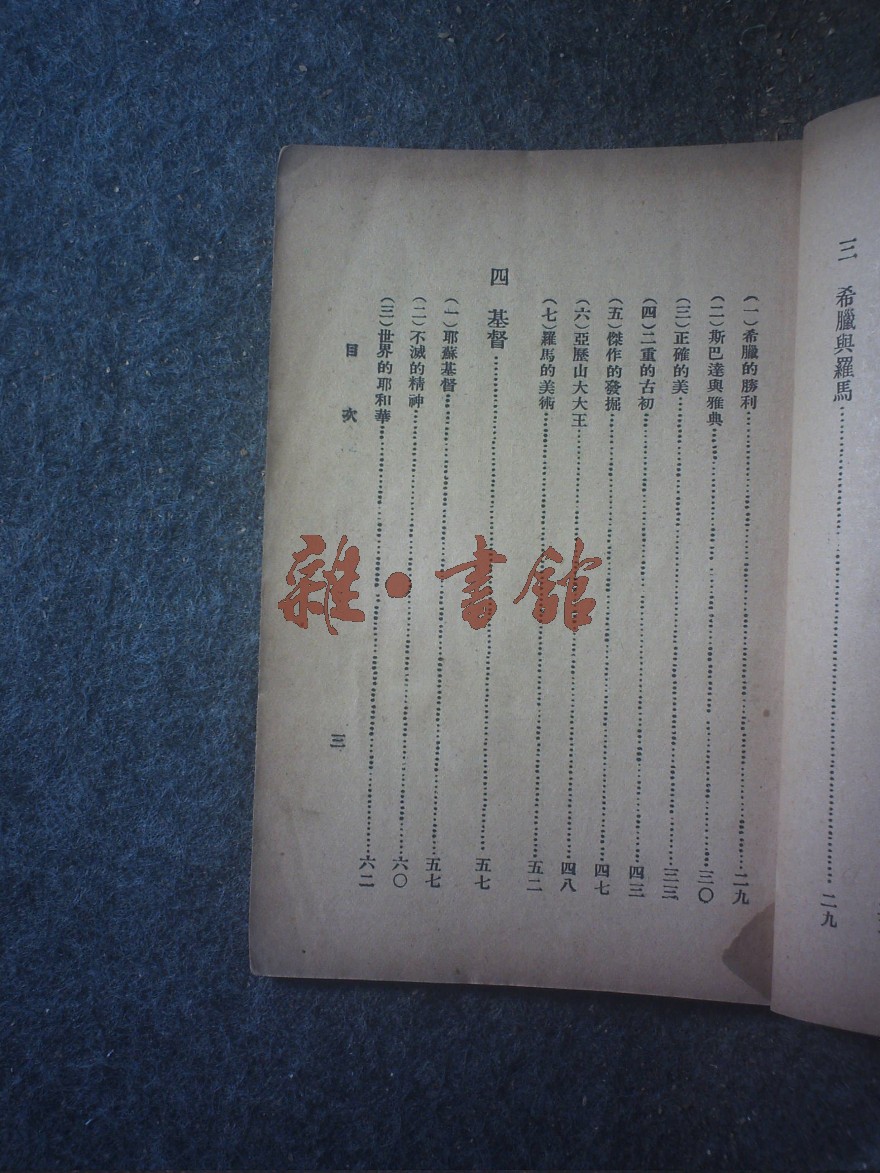 三 希臘與羅馬……二九
(一)希臘的勝利……二九
(二)斯巴達與雅典……三〇
(三)正確的美……三三
(四)二重的古初……四三
(五)傑作的發掘……四七
(六)亞歷山大大王……四八
(七)羅馬的美術……五二
四 基督……五七
(一)耶蘇基督……五七
(二)不滅的精神……六〇
(三)世界的耶和華……六二
目次 三
雜·書館